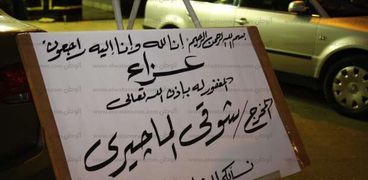 بسم الله الرحمن الرحيم إنا لله وإنا إليه راجعون
عزاء
المغفور له بإذن الله تعالى
المخرج / شوقى الماجيرى